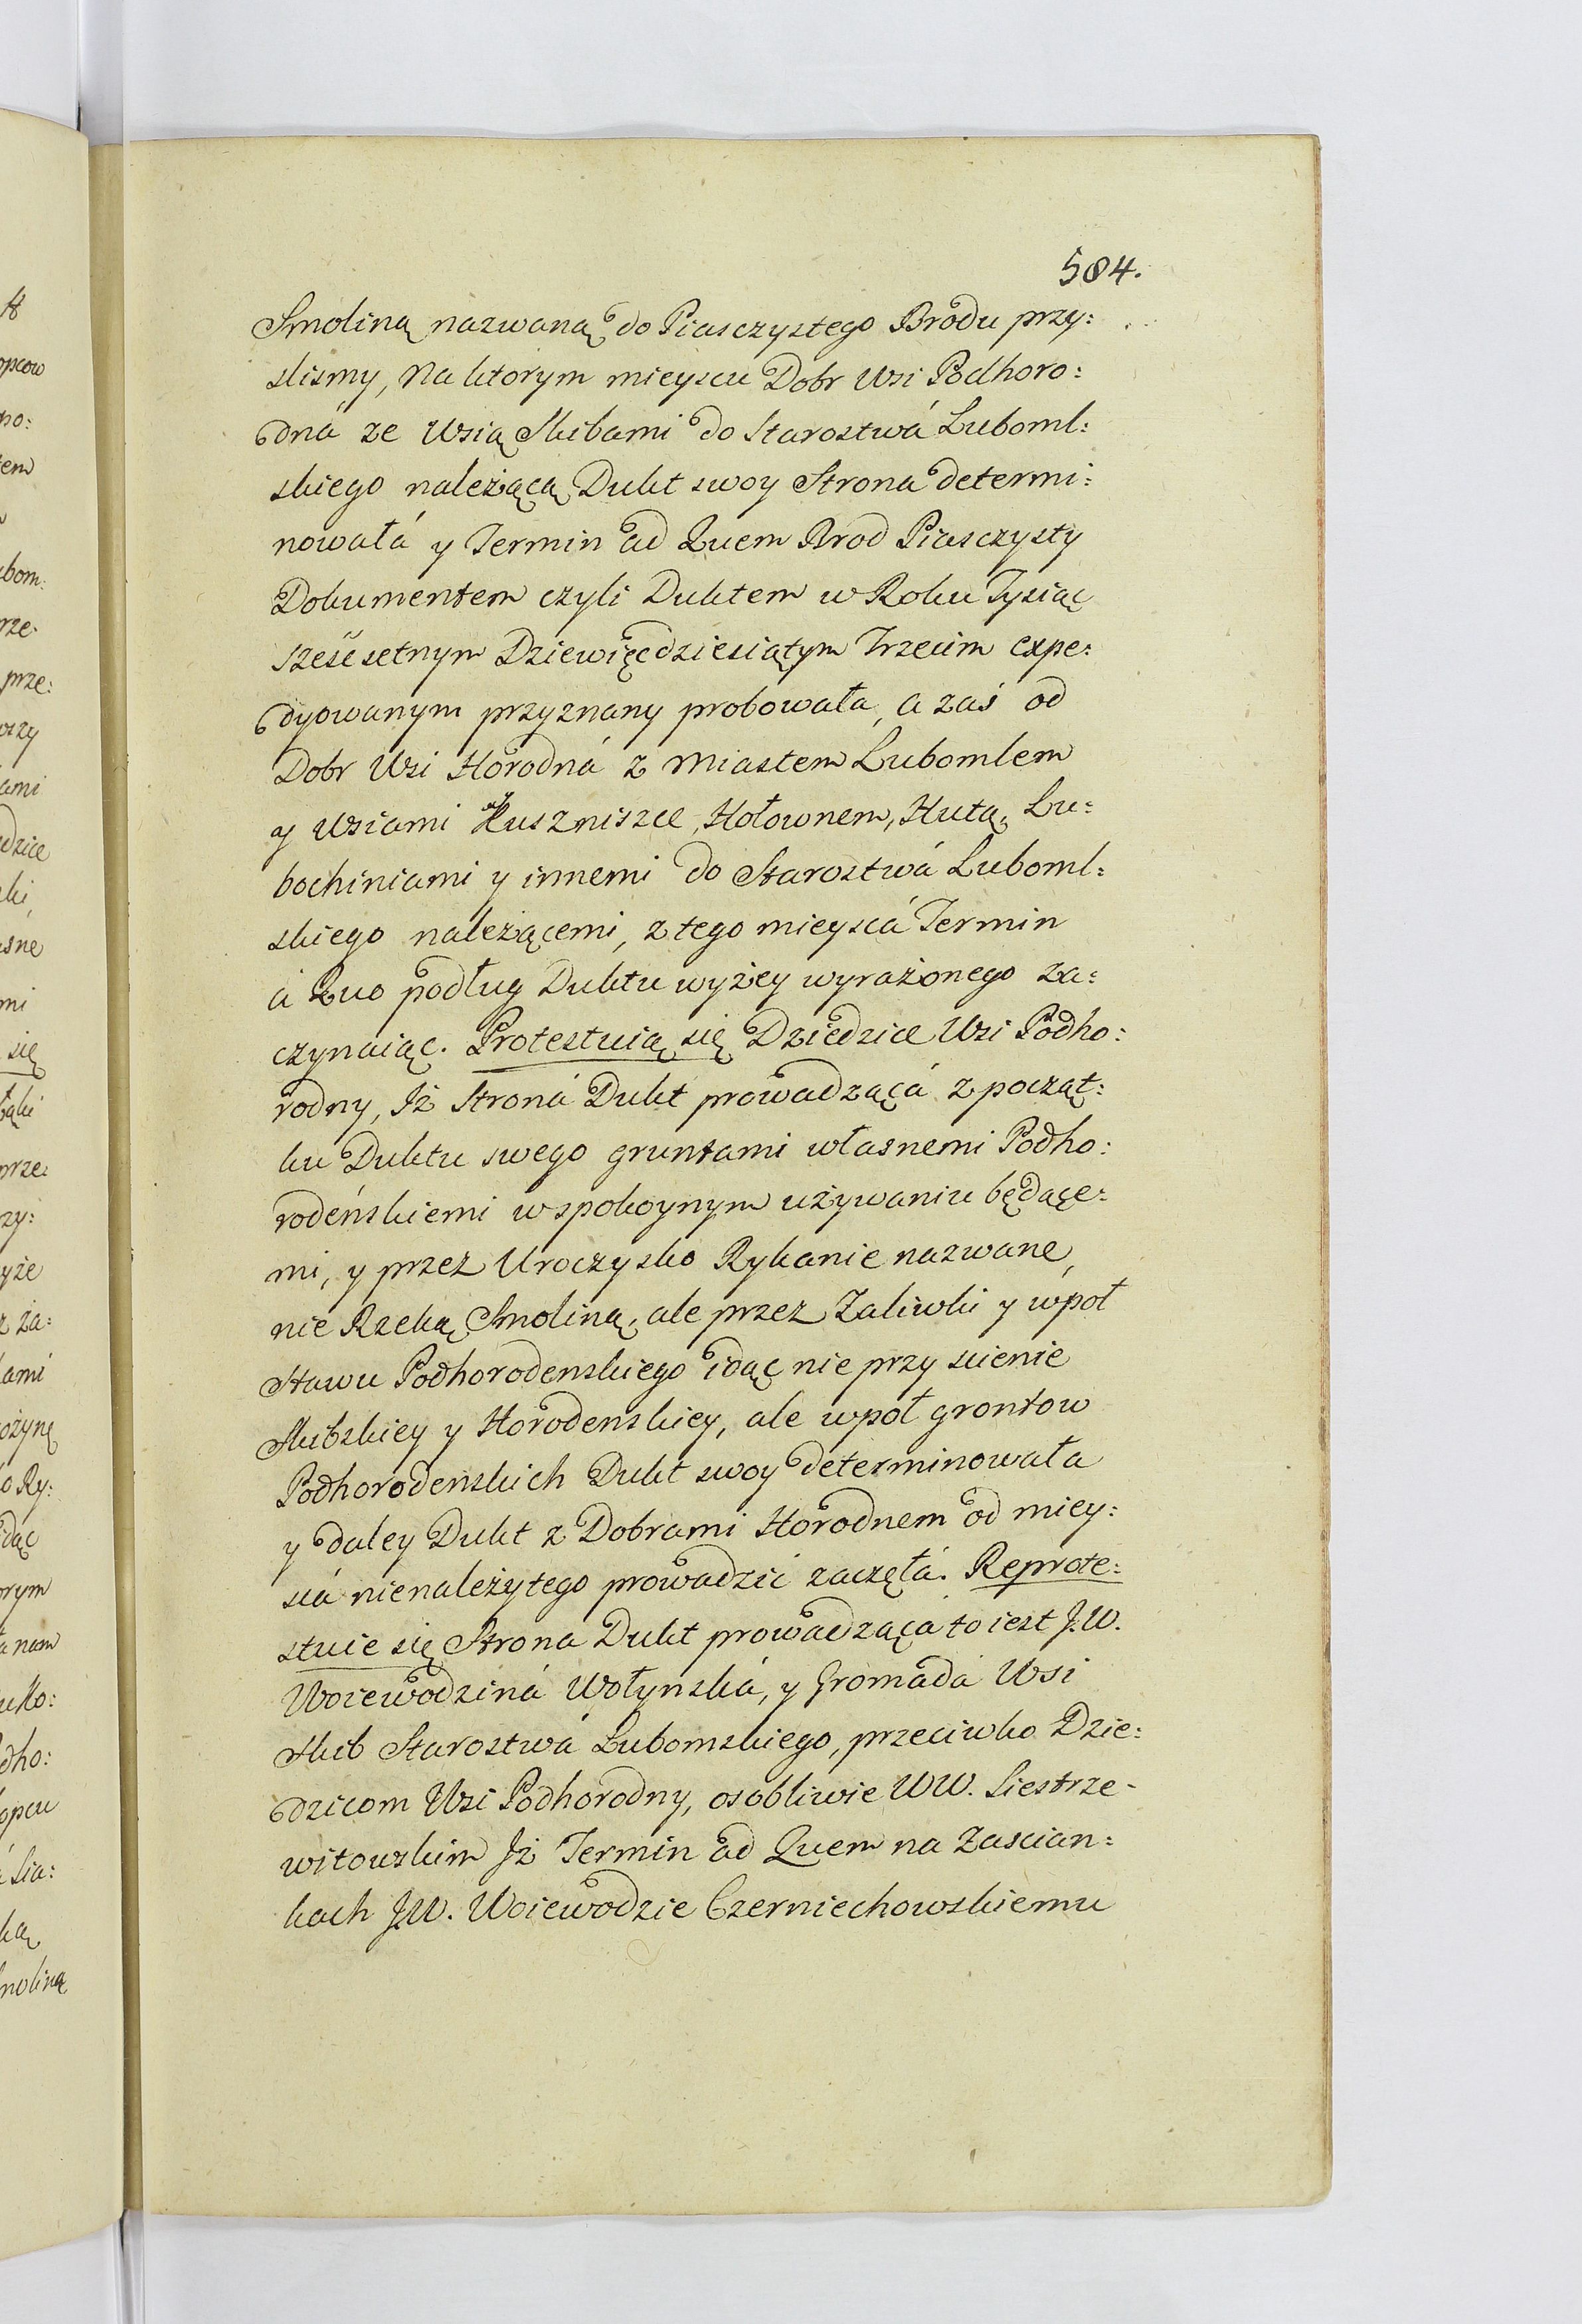 584.
Smoliną nazwaną do Piasczystego Brodu przy:
slismy, Na ktorym mieyscu Dobr Wsi Podhoro:
dná ze Wsią Skibami do Starostwá Luboml:
skiego należącą Dukt swoy Strona determi:
nowałá y Termin ad Quem Brod Piasczysty
Dokumentem czyli Duktem w Roku Tysiąc
sześćsetnym Dziewięcdziesiątym Trzecim expe:
dyowanym przyznany probowała, a zaś od
Dobr Wsi Horodná z Miastem Lubomlem
y Wsiami Kuszniszcze, Hołownem, Hutą, Lu:
bochiniami y innemi do Starostwá Luboml:
skiego należącemi, z tego mieyscá Termin
á Quo podług Duktu wyżey wyrażonego za:
czynaiąc. Protestuią się Dziedzice Wsi Podho:
rodny, Iż Stroná Dukt prowadzącá z począt:
ku Duktu swego gruntami własnemi Podho:
rodeńskiemi w spokoynym używaniu będące:
mi, y przez Uroczysko Rykanie nazwane,
nie Rzeką Smoliną, ale przez Zaliwki y wpoł
Stawu Podhorodenskiego idąc nie przy scienie
Skibskiey y Horodenskiey, ale wpoł grontow
Podhorodenskich Dukt swoy determinowała
y daley Dukt z Dobrami Horodnem od miey:
scá nienależytego prowadzić zaczęłá. Reprote:
stuie się Strona Dukt prowadzącá to iest J.W.
Woiewodziná Wołynská, y Gromadá Wsi
Skib Starostwá Lubomskiego, przeciwko Dzie:
dzicom Wsi Podhorodny, osobliwie WW. Siestrze-
witowskim Iż Termin ad Quem na Zascian:
kach J.W. Woiewodzie Czerniechowskiemu